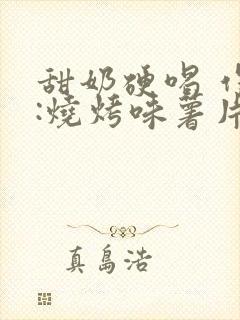 甜奶硬唱
:燒烤味薯片
真島浩